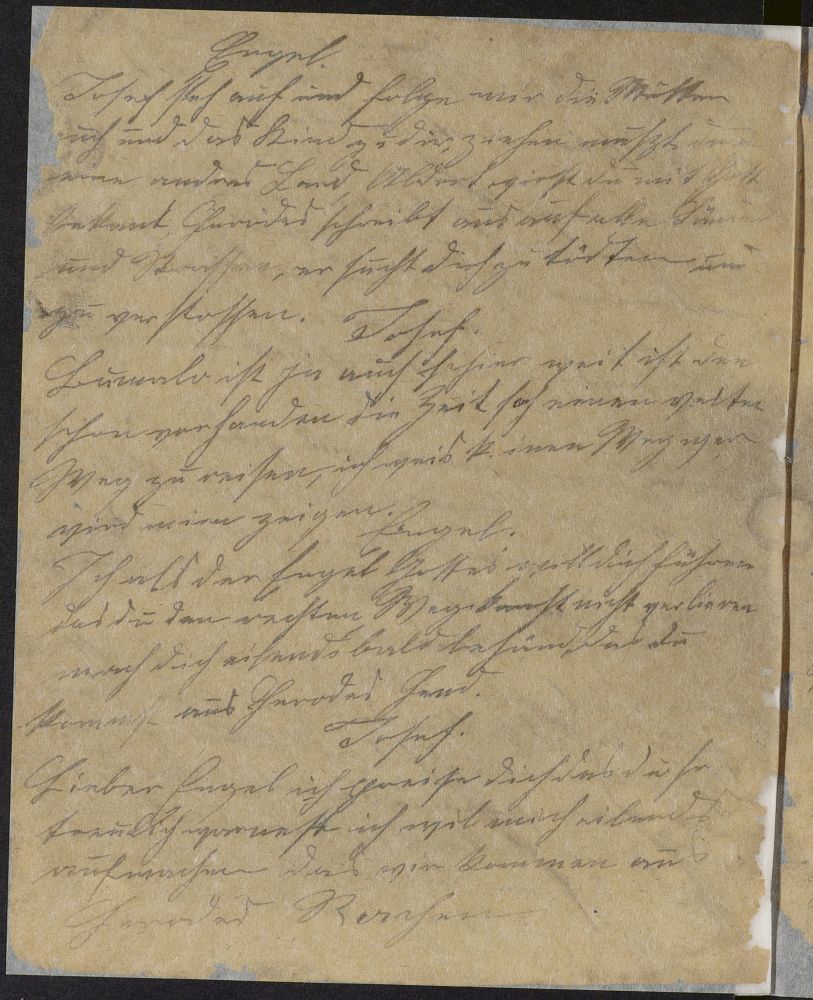 Engel.
Josef steh auf und folge mir die Mutter
auch und das Kind zu dir, ziehen muszt in
eine andres Land, Aldort wirst du mit Gott
bekant. Herodes schreibt aus auf alle
und Strassen, er sucht dich zu tödten und
zu verstossen. Josef.
ist ja auch schier weit ist den
schon vorhanden die Zeit soh einen weiten
Weg zu reisen, ich weis keinen Weg wer
wird mirn zeigen. Engel.
Ich als der Engel Gottes will dich führen
das du den rechten Weg kanst nicht verlieren
mach dich eilends bald behänd, das du
kommst aus Herodes Hend.
Josef.
Lieber Engel ich preise dich das du so
treulich warnest ich wil mich eilends
aufmachen das wir kommen aus
Herodes Rachen